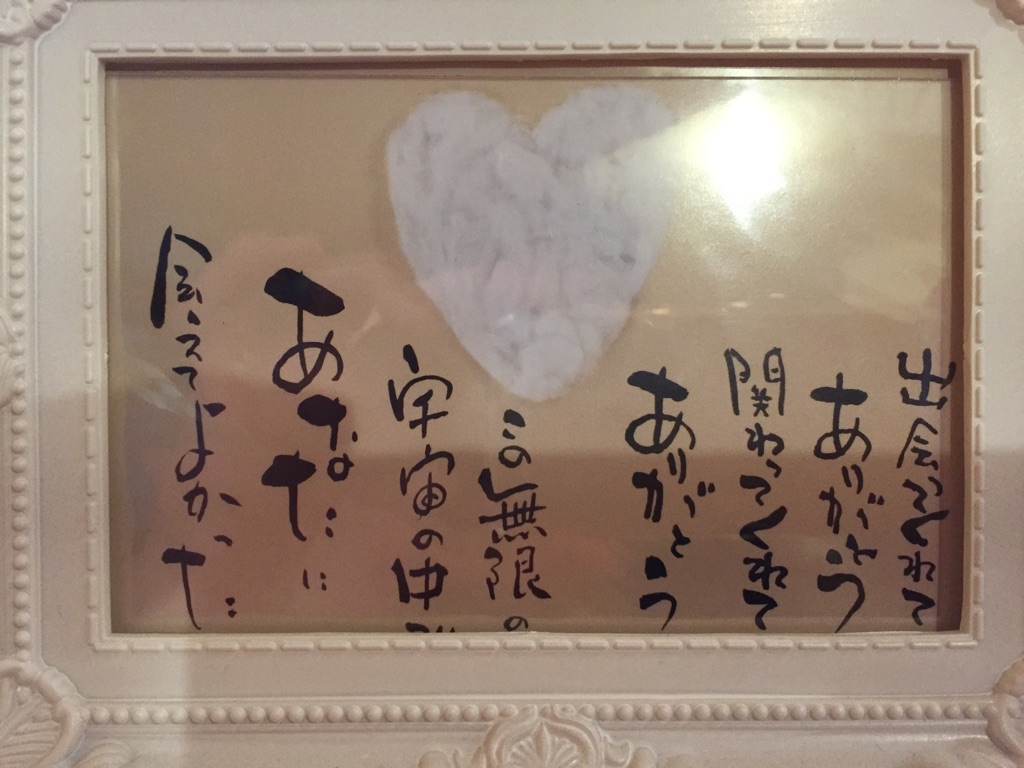 出会ってくれて
ありがとう
関わってくれて
ありがとう
この無限の
宇宙の中
あなたに
会えてよかった